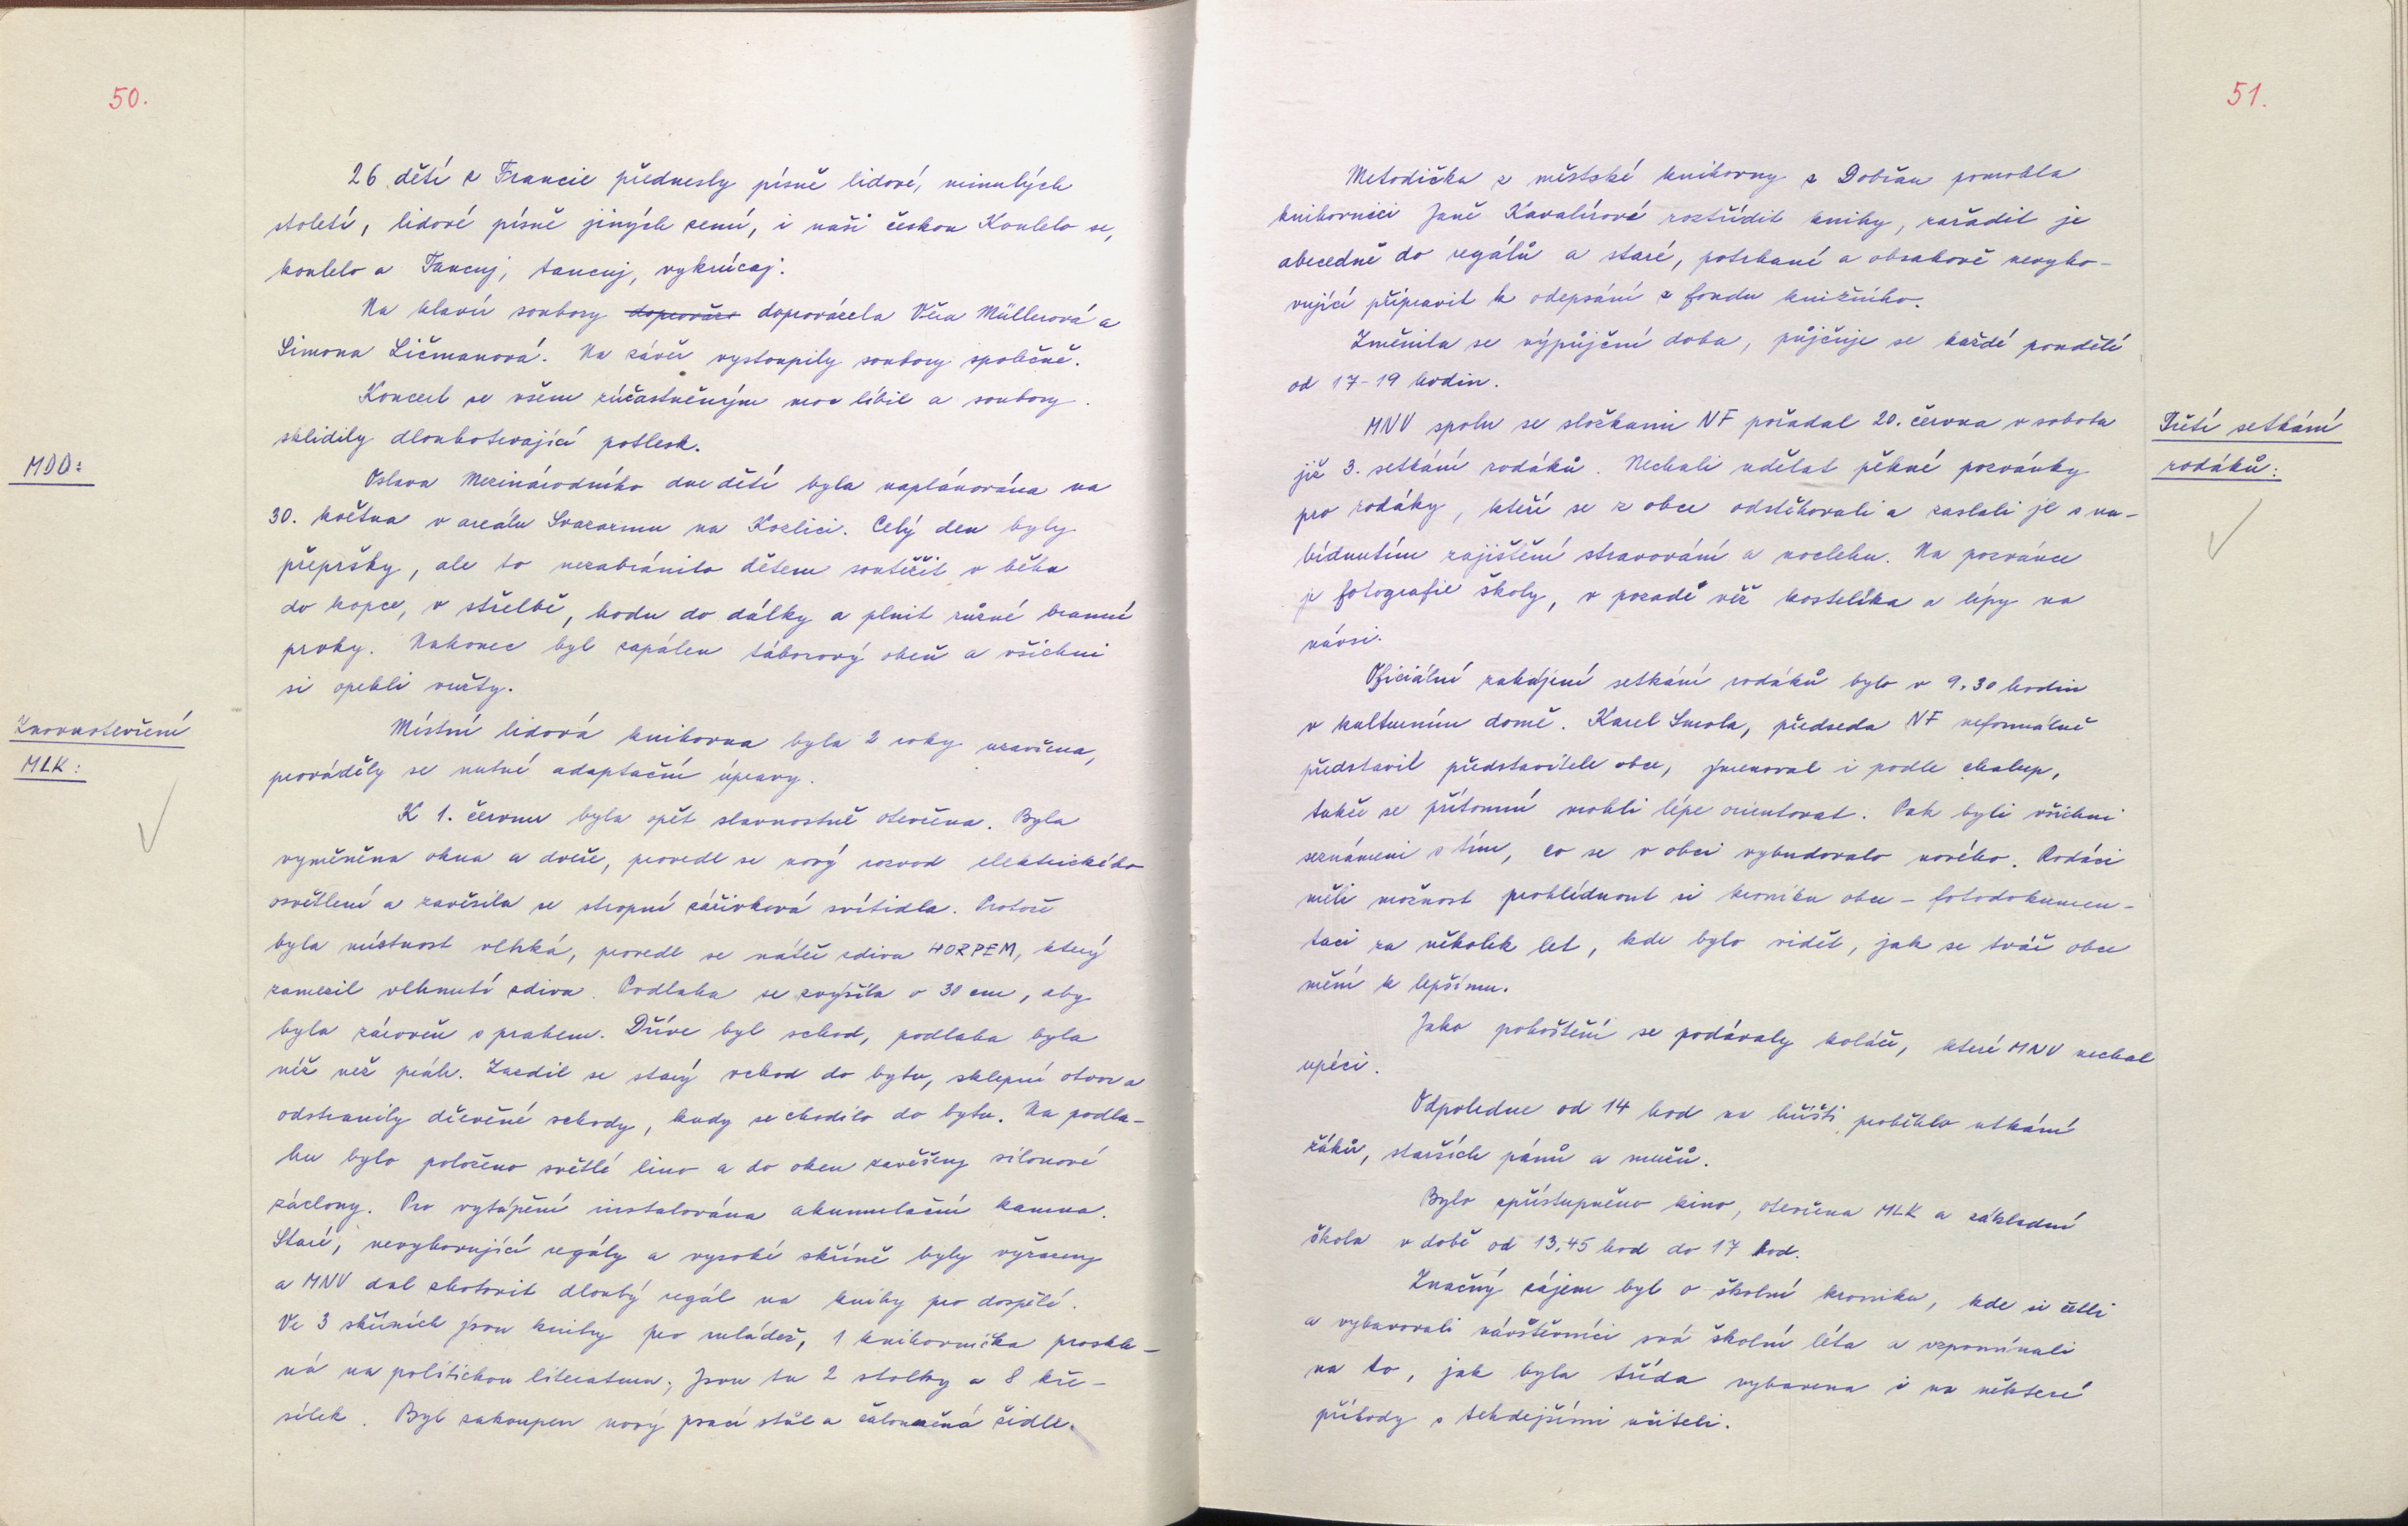 50.
26 dětí z Francie přednesly písně lidové, minulých
století, lidové písně jiných zemí, i naši českou Koulelo se,
koulelo a Tancuj, tancuj, vykrúcaj.
Na klavír soubory doprovázela Věra Müllerová a
Simona Ličmanová. Na závěr vystoupily soubory společně.
Koncert se všem zúčastněným moc líbil a soubory
sklidily dlouhotrvající potlesk.
MDD:
Oslava Mezinárodního dne dětí byla naplánována na
30. května v areálu Svazarmu na Kozlici. Celý den byly
přepršky, ale to nezabránilo dětem soutěžit v běhu
do kopce, v střelbě, hodu do dálky a plnit různé branné
prvky. Nakonec byl zapálen táborový oheň a všichni
si opekli vuřty.
Znovuotevření
MLK:
Místní lidová knihovna byla 2 roky uzavřena,
prováděly se nutné adaptační úpravy.
K 1. červnu byla opět slavnostně otevřena. Byla
vyměněna okna a dveře, provedl se nový rozvod elektrického
osvětlení a zavěsila se stropní zářivková svítidla. Protože
byla místnost vlhká, provedl se nátěr zdiva HORPEM, který
zamezil vlhnutí zdiva. Podlaha se zvýšila o 30 cm, aby
byla zároveň s prahem. Dříve byl schod, podlaha byla
níž než práh. Zazdil se starý vchod do bytu, sklepní otvor a
odstranily dřevěné schody, kudy se chodilo do bytu. Na podla-
hu bylo položeno světlé lino a do oken zavěšeny silonové
záclony. Pro vytápění instalována akumulační kamna.
Staré, nevyhovující regály a vysoké skříně byly vyřazeny
a MNV dal zhotovit dlouhý regál na knihy pro dospělé.
Ve 3 skříních jsou knihy pro mládež, 1 knihovnička proskle-
ná na politickou literaturu. Jsou tu 2 stolky a 8 kře-
sílek. Byl zakoupen nový psací stůl a čalouněná židle.
51.
Metodička z městské knihovny z Dobřan pomohla
knihovnici Janě Kavalírové roztřídit knihy, zařadit je
abecedně do regálů a staré, potrhané a obsahově nevyho-
vující připravit k odepsání z fondu knižního.
Změnila se výpůjční doba, půjčuje se každé pondělí
od 17-19 hodin.
Třetí setkání
rodáků:
MNV spolu se složkami NF pořádal 20. června v sobotu
již 3. setkání rodáků. Nechali udělat pěkné pozvánky
pro rodáky, kteří se z obce odstěhovali a zaslali je s na-
bídnutím zajištění stravování a noclehu. Na pozvánce
je fotografie školy, v pozadí věž kostelíka a lípy na
návsi.
Oficiální zahájení setkání rodáků bylo v 9,30 hodin
v kulturním domě. Karel Smola, předseda NF neformálně
představil představitele obce, jmenoval i podle chalup,
takže se přítomní mohli lépe orientovat. Pak byli všichni
seznámeni s tím, co se v obci vybudovalo nového. Rodáci
měli možnost prohlédnout si kroniku obce - fotodokumen-
taci za několik let, kde bylo vidět, jak se tvář obce
mění k lepšímu.
Jako pohoštění se podávaly koláče, které MNV nechal
upéci.
Odpoledne od 14 hod na hřišti proběhlo utkání
žáků, starších pánů a mužů.
Bylo zpřístupněno kino, otevřena MLK a základní
škola v době od 13,45 hod do 17 hod.
Značný zájem byl o školní kroniku, kde si četli
a vybavovali návštěvníci svá školní léta a vzpomínali
na to, jak byla třída vybavena i na některé
příhody s tehdejšími učiteli.